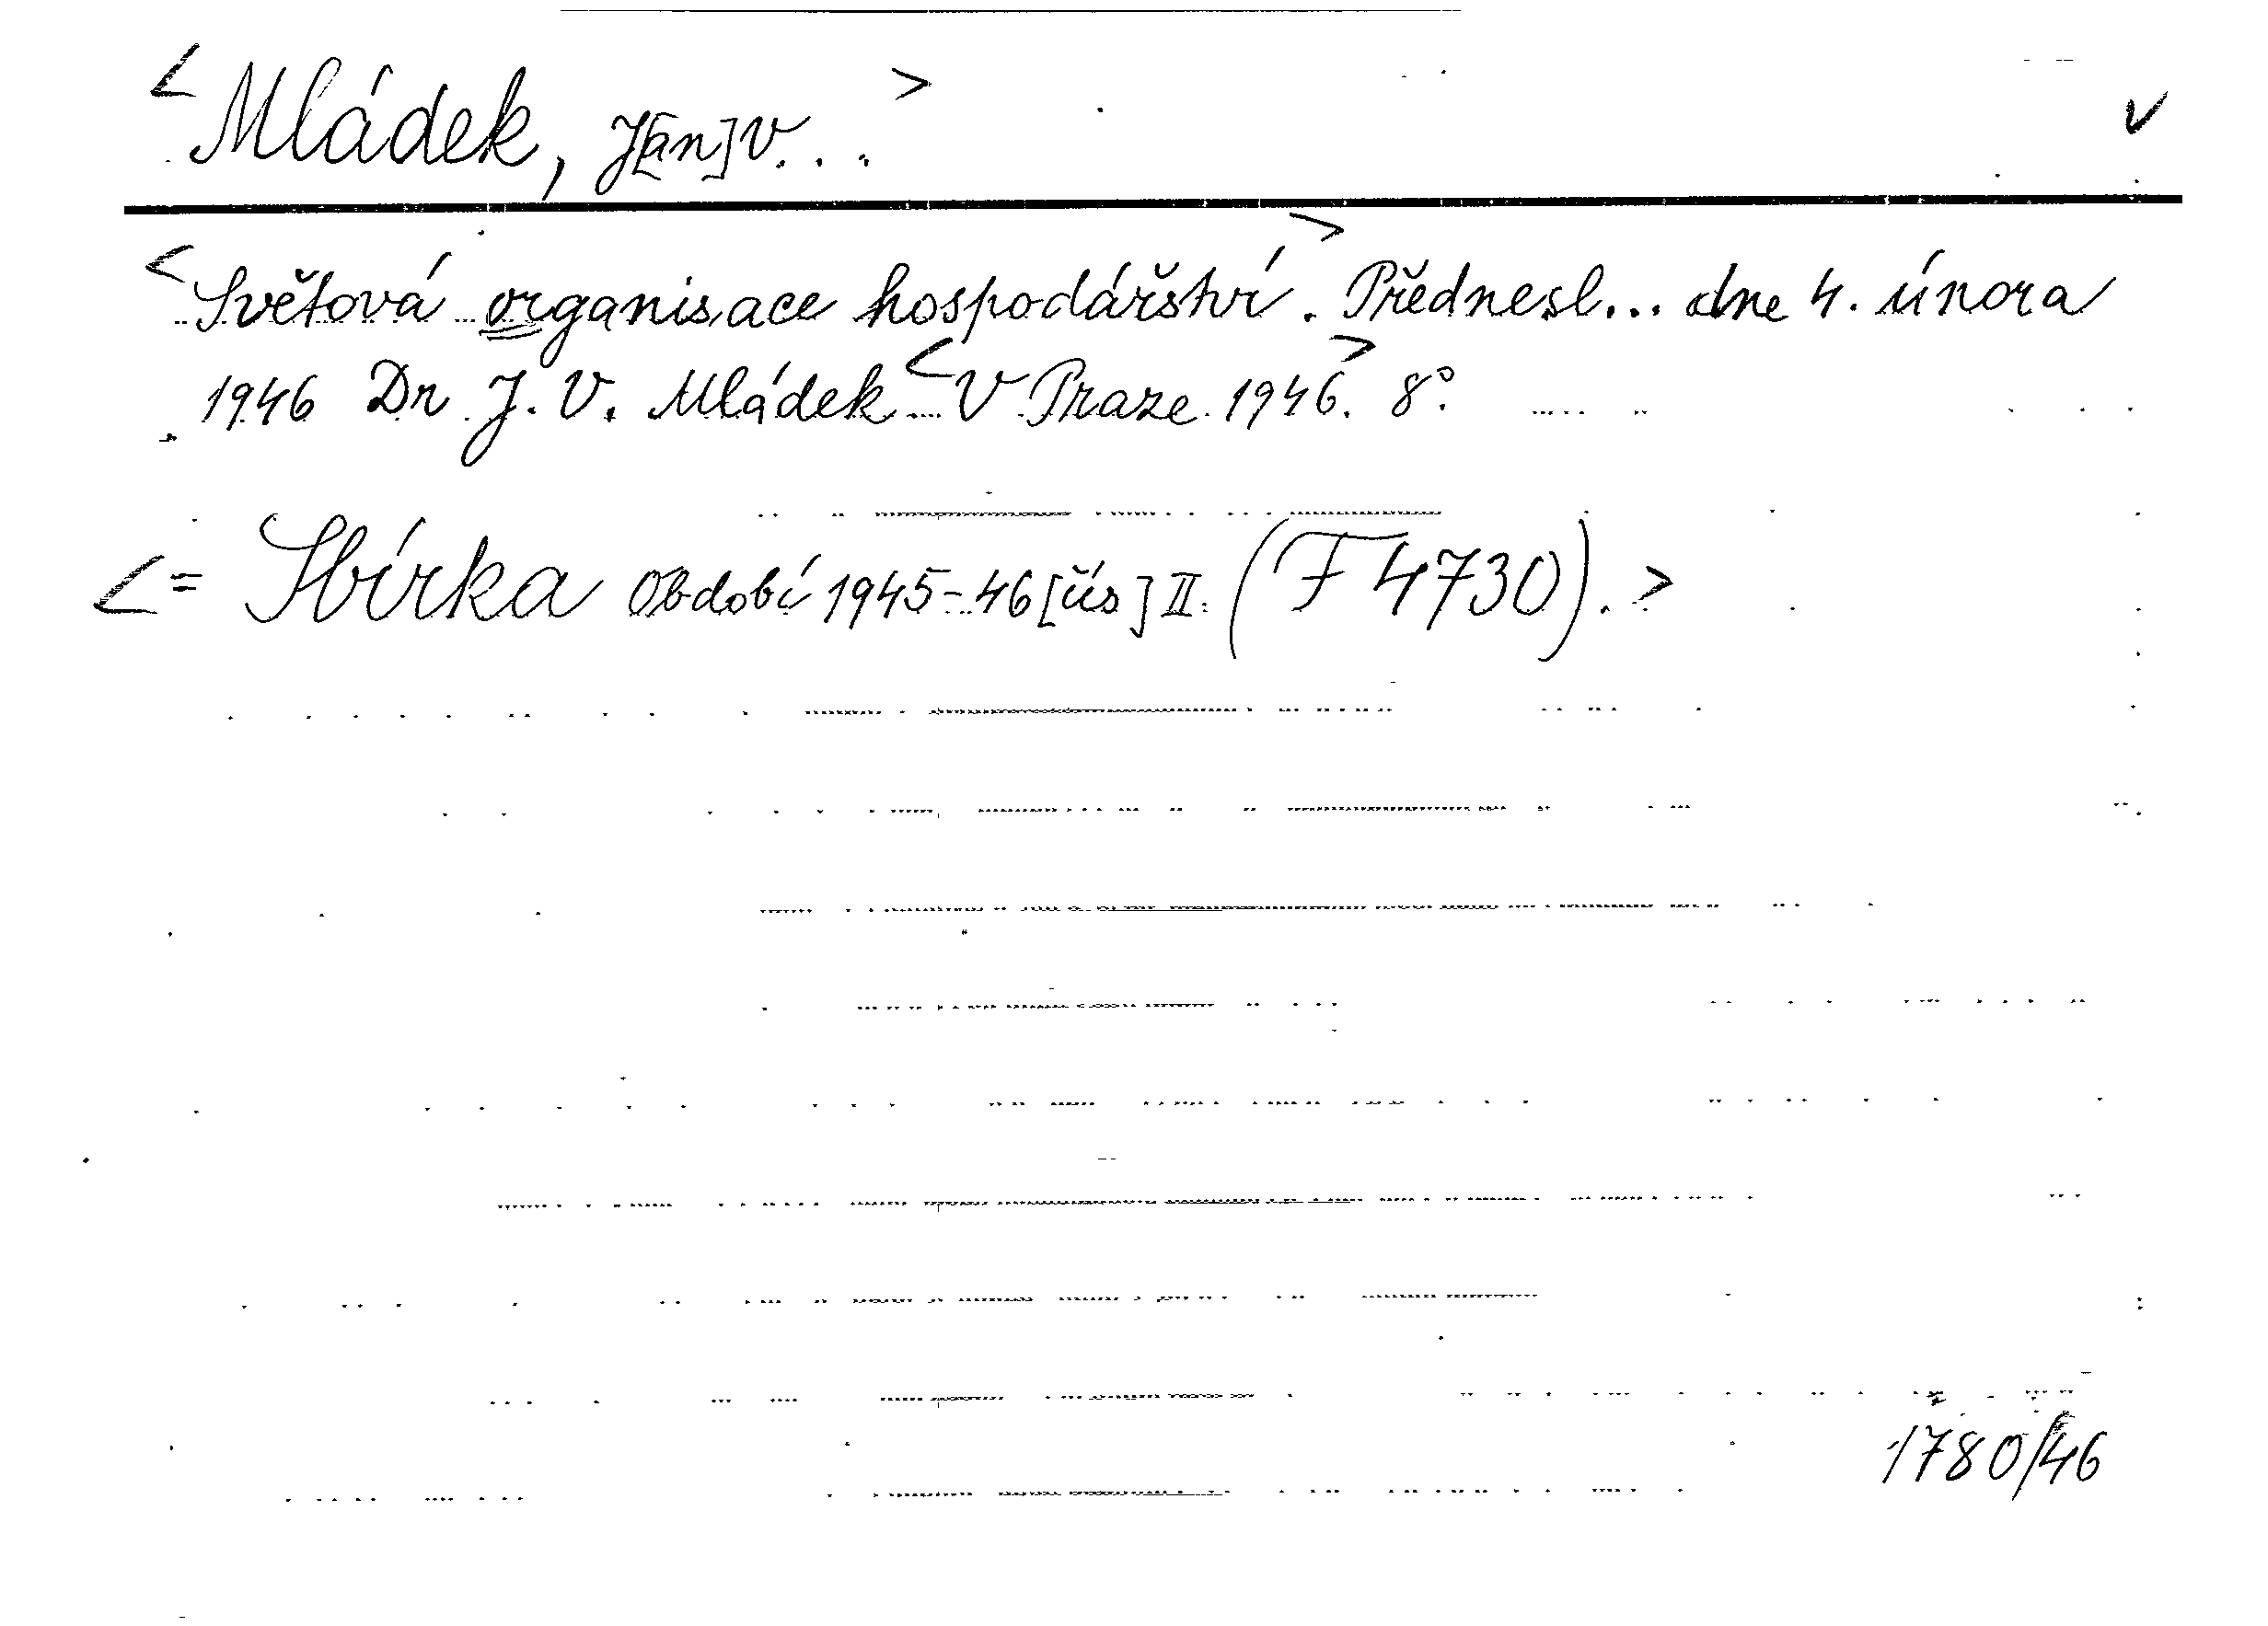 <Mládek, J[an] V...>
v
<Světová organisace hospodářství.> Přednesl... dne 4. února
1946 Dr J. V. Mládek. <V Praze 1946.> 8°.
<= Sbírka Období 1945-46 [čís] II. (F 4730).>
1780/46